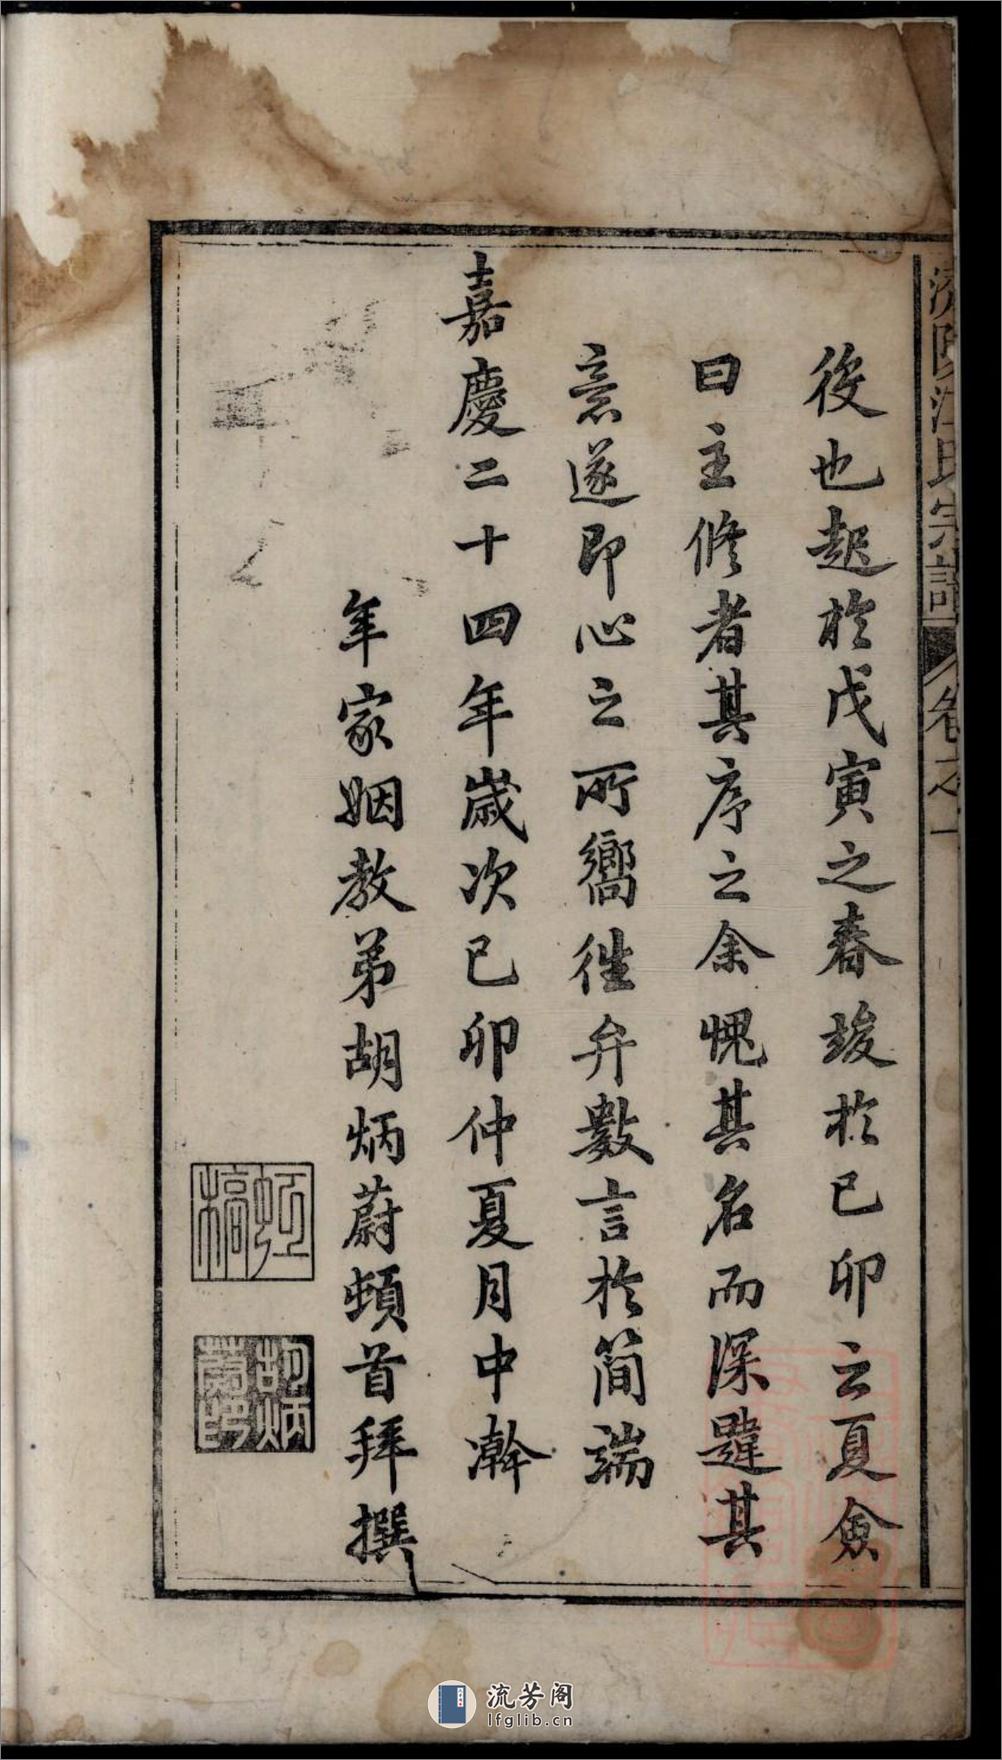 濟陽江氏宗譜 卷之一
後也起於戊寅之春竣於己卯之夏僉
曰主修者其序之余愧其名而深韙其
意遂即心之所嚮往弁數言於簡端
嘉慶二十四年歲次己卯仲夏月中澣
年家姻教弟胡炳蔚頓首拜撰
胡炳蔚印
流芳阁
lfglib.cn